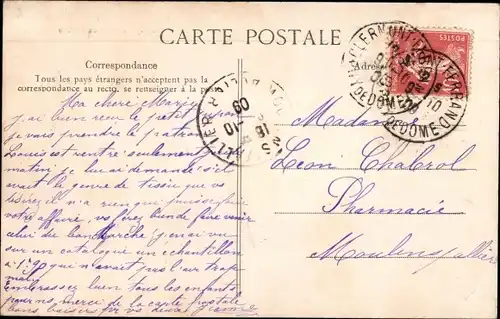 CARTE POSTALE
Correspondance
Tous les pays étrangers n'acceptent pas la
correspondance au recto, se renseigner à la poste
Adresse
POSTES
CLERMONT-FERRAND
PUY-DE-DOME
MOULINS ALLIER
18 -10 09
Ma chère Marie
j'ai bien reçu le petit
je vais prendre le patron
Louis est rentré seulement
matin je lui ai demandé s'il
avait le genre de tissu que vous
désirez il n'a rien qui
votre affaire, vous ferez bien de faire venir
celui du bon Marché, j'en ai vu
sur un catalogue un échantillon
à 1.90 qui n'avait pas l'air trop
mal
Embrassez bien tous les enfants
pour nous merci de la carte postale
bons baisers pour vous deux Jeanne
Madame
Léon Chabrol
Pharmacie
Moulins Allier